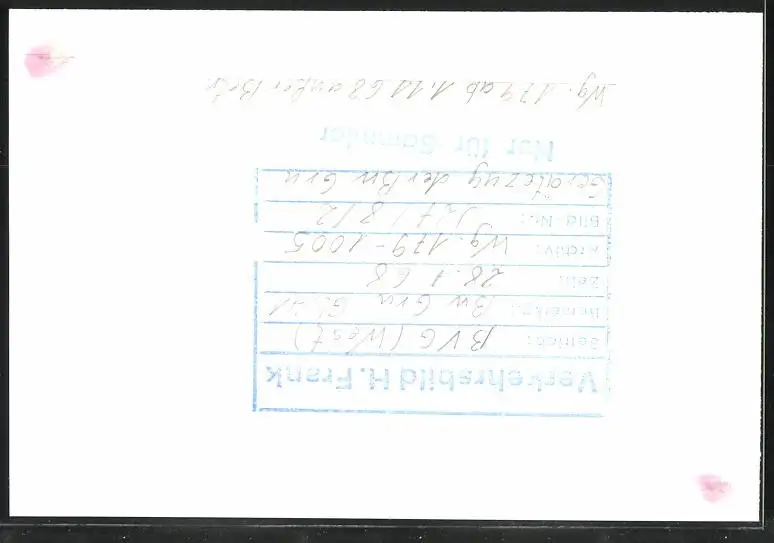 Verkehrsbild H. Frank
Betrieb: BVG (West)
Bemerkg.: Bw Gru
Zeit: 28.1.68
Archiv: Wg. 179-1005
Bild-Nr.: 8/2
Gerätezug der Bw Gru
Nur für Sammler
Wg. 179 ab 1.11.68 außer Betr.